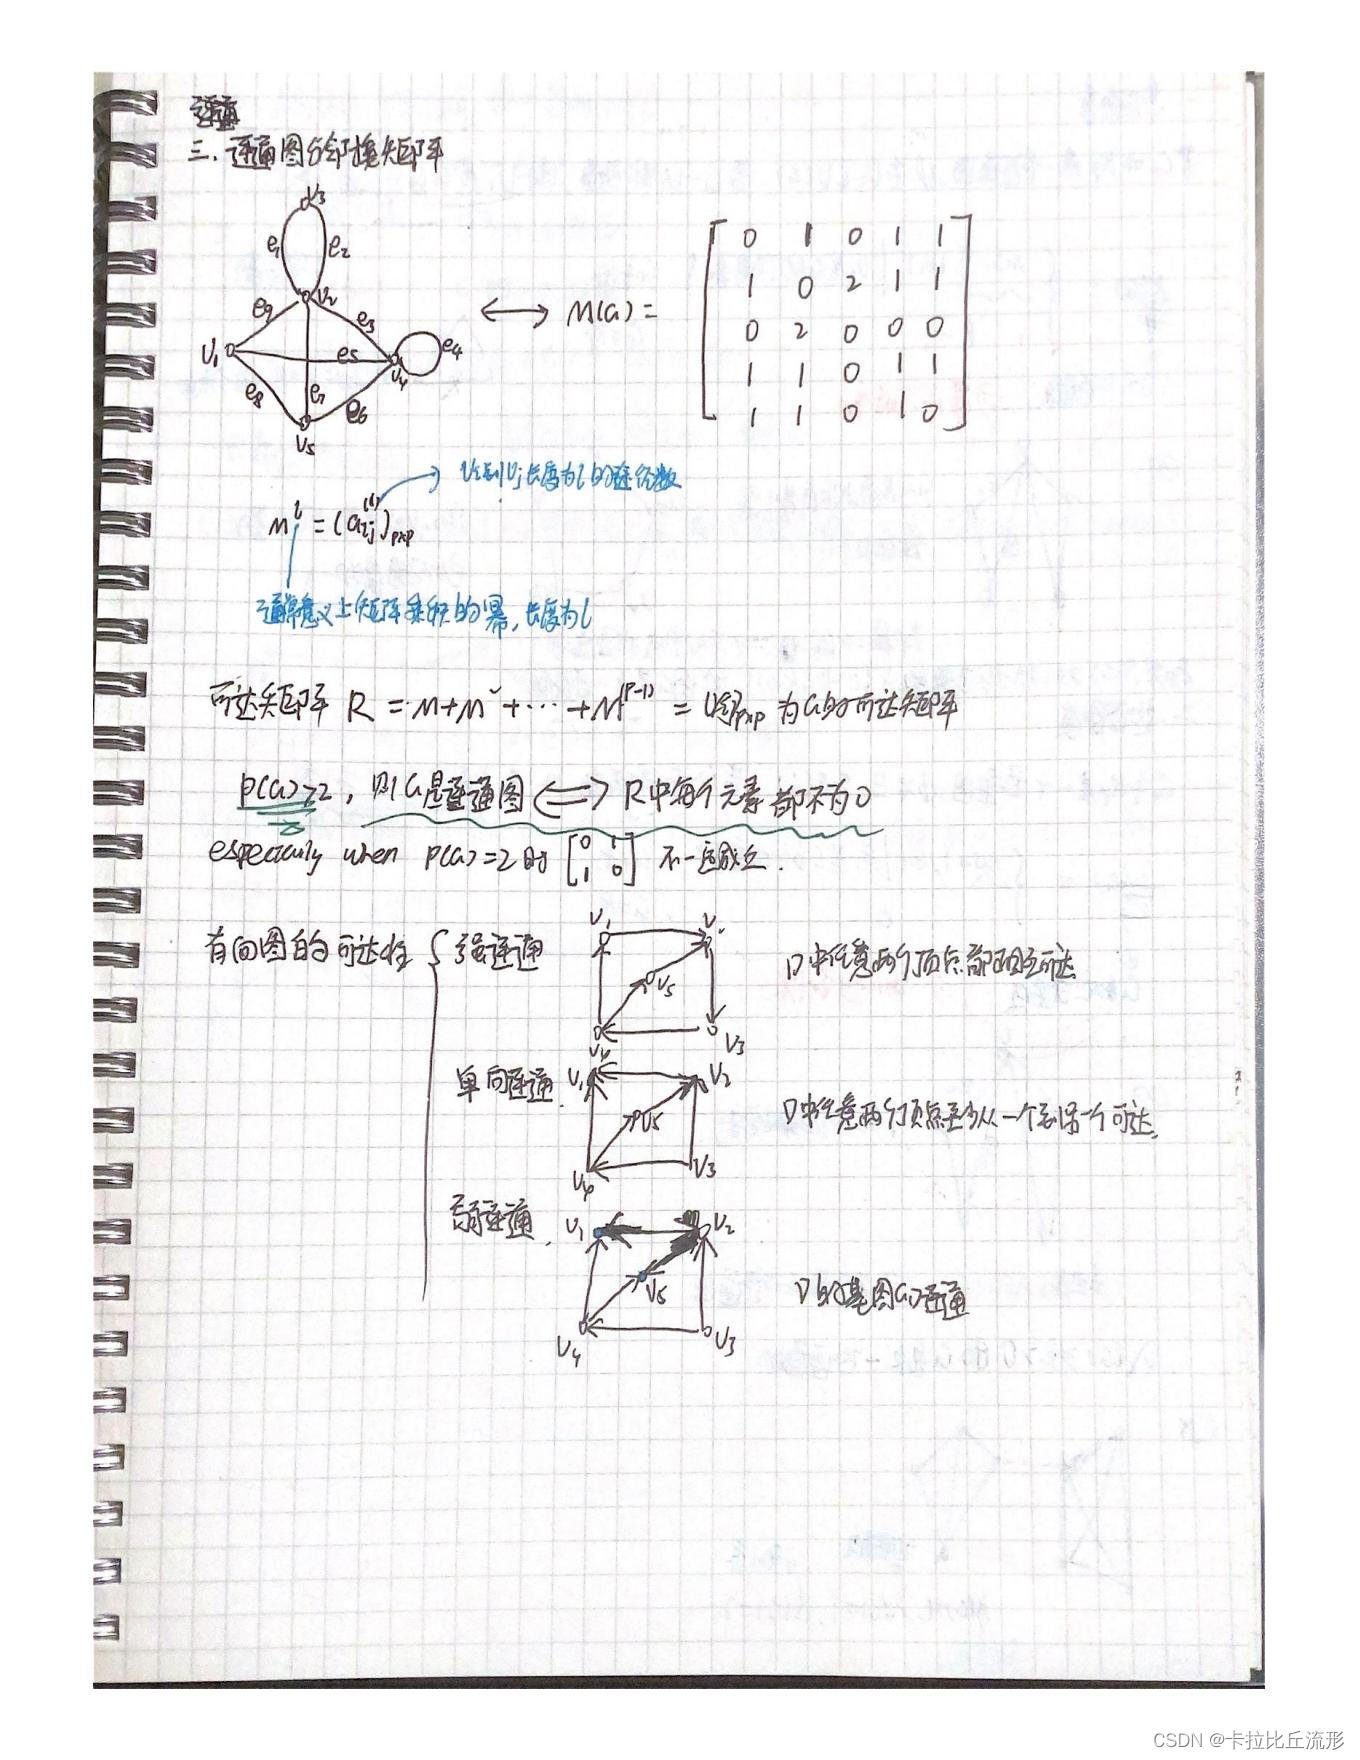 连通
三. 连通图与邻接矩阵
v3
e1 e2
v2
e9 e3
v1 e5 e4
v4
e8 e7 e6
v5
⟷ M(G) =
0 1 0 1 1
1 0 2 1 1
0 2 0 0 0
1 1 0 1 1
1 1 0 1 0
vi到vj长度为l的途径数
M^l = (a_ij^(l))_p×p
通常意义上矩阵乘积的幂, 长度为l
可达矩阵 R = M+M²+⋯+M^(P-1) = [r_ij]_p×p 为G的可达矩阵
p(G)≥2, 则G是连通图 ⟺ R中每个元素都不为0
especially when p(G)=2时 [0 1 1 0] 不一定成立.
有向图的可达性 { 强连通
v1 v2
v5
v4 v3
D中任意两个顶点都相互可达
单向连通.
v1 v2
v5
v4 v3
D中任意两个顶点至少从一个到另一个可达.
弱连通.
v1 v2
v5
v4 v3
D的基图G连通
CSDN @卡拉比丘流形